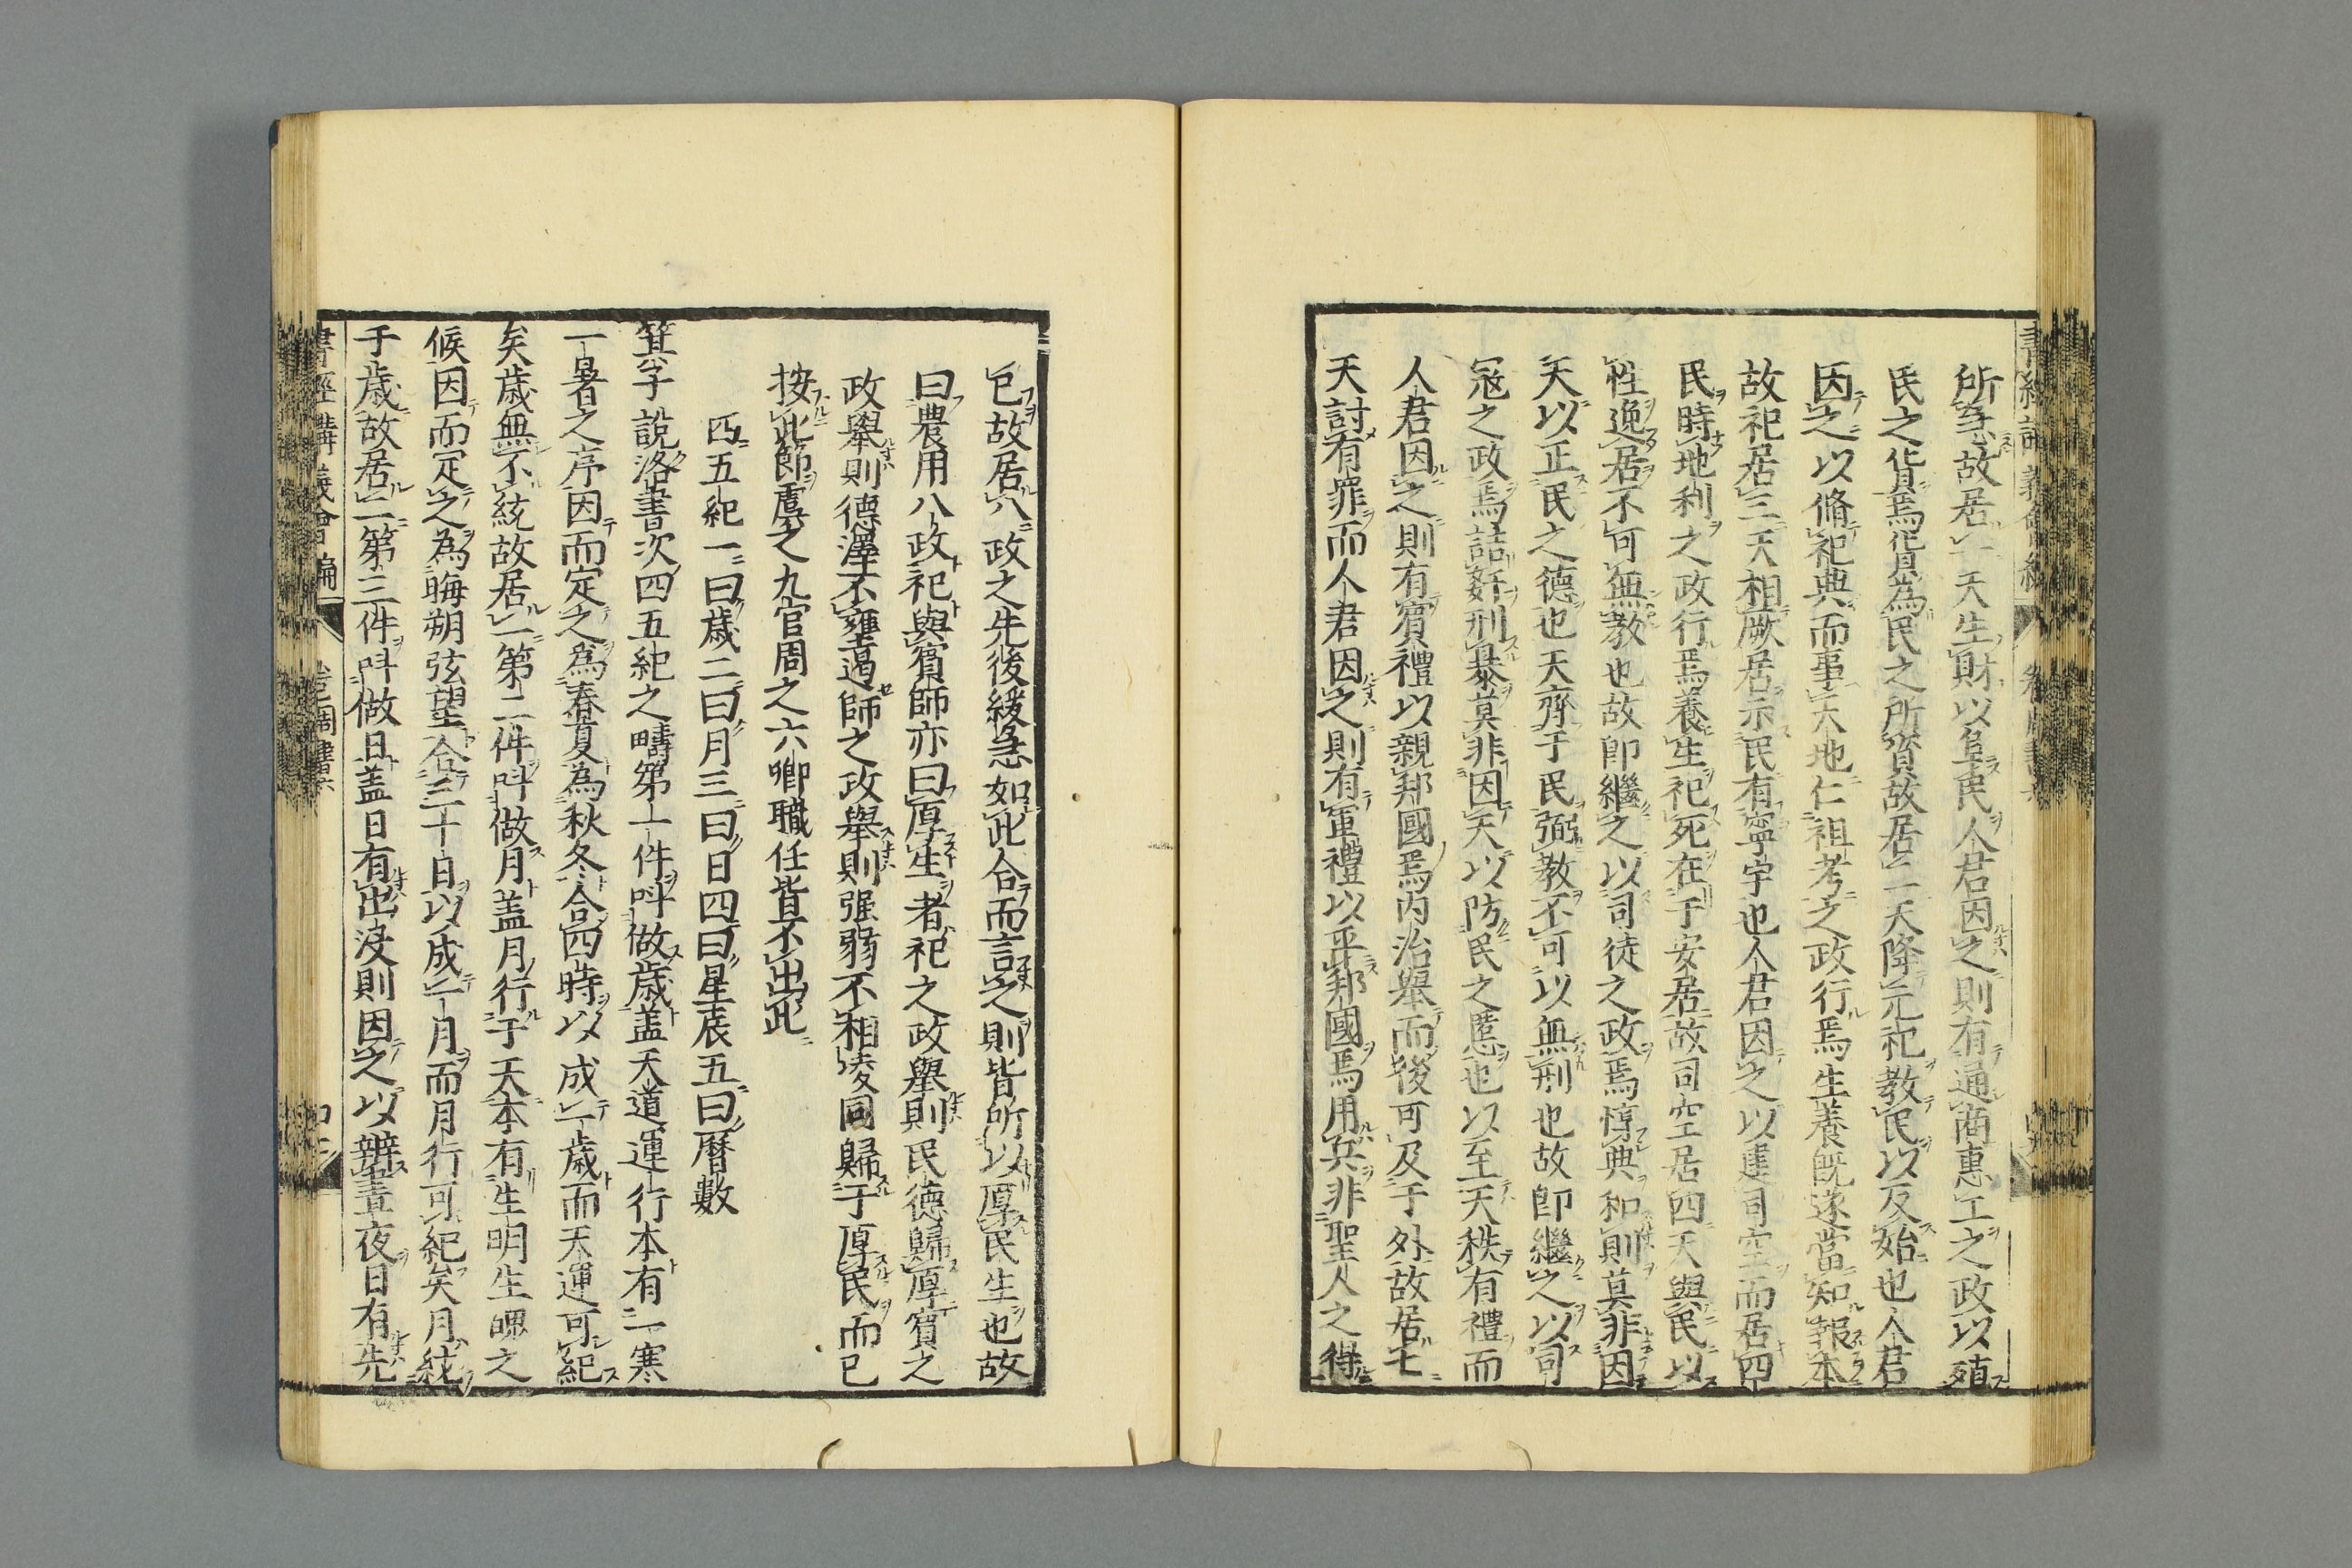 所急故居一天生財以阜民人君因之則有通商惠工之政以殖
民之貨焉貨為民之所資故居二天降元祀教民以及始也人君
因之以脩祀典而事天地仁祖考之政行焉生養既遂當知報本
故祀居三天相厥居示民有寧宇也人君因之以建司空而居四
民時地利之政行焉養生祀死在于安居故司空居四天與民以
性逸居不可無教也故即繼之以司徒之政焉惇典和則莫非因
天以正民之德也天齊于民弼教不可以無刑也故即繼之以司
冦之政焉詰姦刑暴莫非因天以防民之慝也以至天秩有禮而
人君因之則有賓禮以親邦國焉內治舉而後可及于外故居七
天討有罪而人君因之則有軍禮以平邦國焉用兵非聖人之得
已故居八政之先後緩急如此合而言之則皆所以厚民生也故
曰農用八政祀與賓師亦曰厚生者祀之政舉則民德歸厚賓之
政舉則德澤不壅遏師之政舉則强弱不相凌同歸于厚民而已
按此節虞之九官周之六卿職任皆不出此
四五紀一曰歲二曰月三曰日四曰星辰五曰曆數
箕子說洛書次四五紀之疇第一件呌做歲盖天道運行本有一寒
一暑之序因而定之爲春夏為秋冬合四時以成一歲而天運可紀
矣歲無不統故居一第二件呌做月盖月行于天本有生明生魄之
候因而定之為晦朔弦望合三十日以成一月而月行可紀矣月統
于歲故居二第三件呌做日盖日有出没則因之以辨晝夜日有先
書經講義會編
卷七周書六